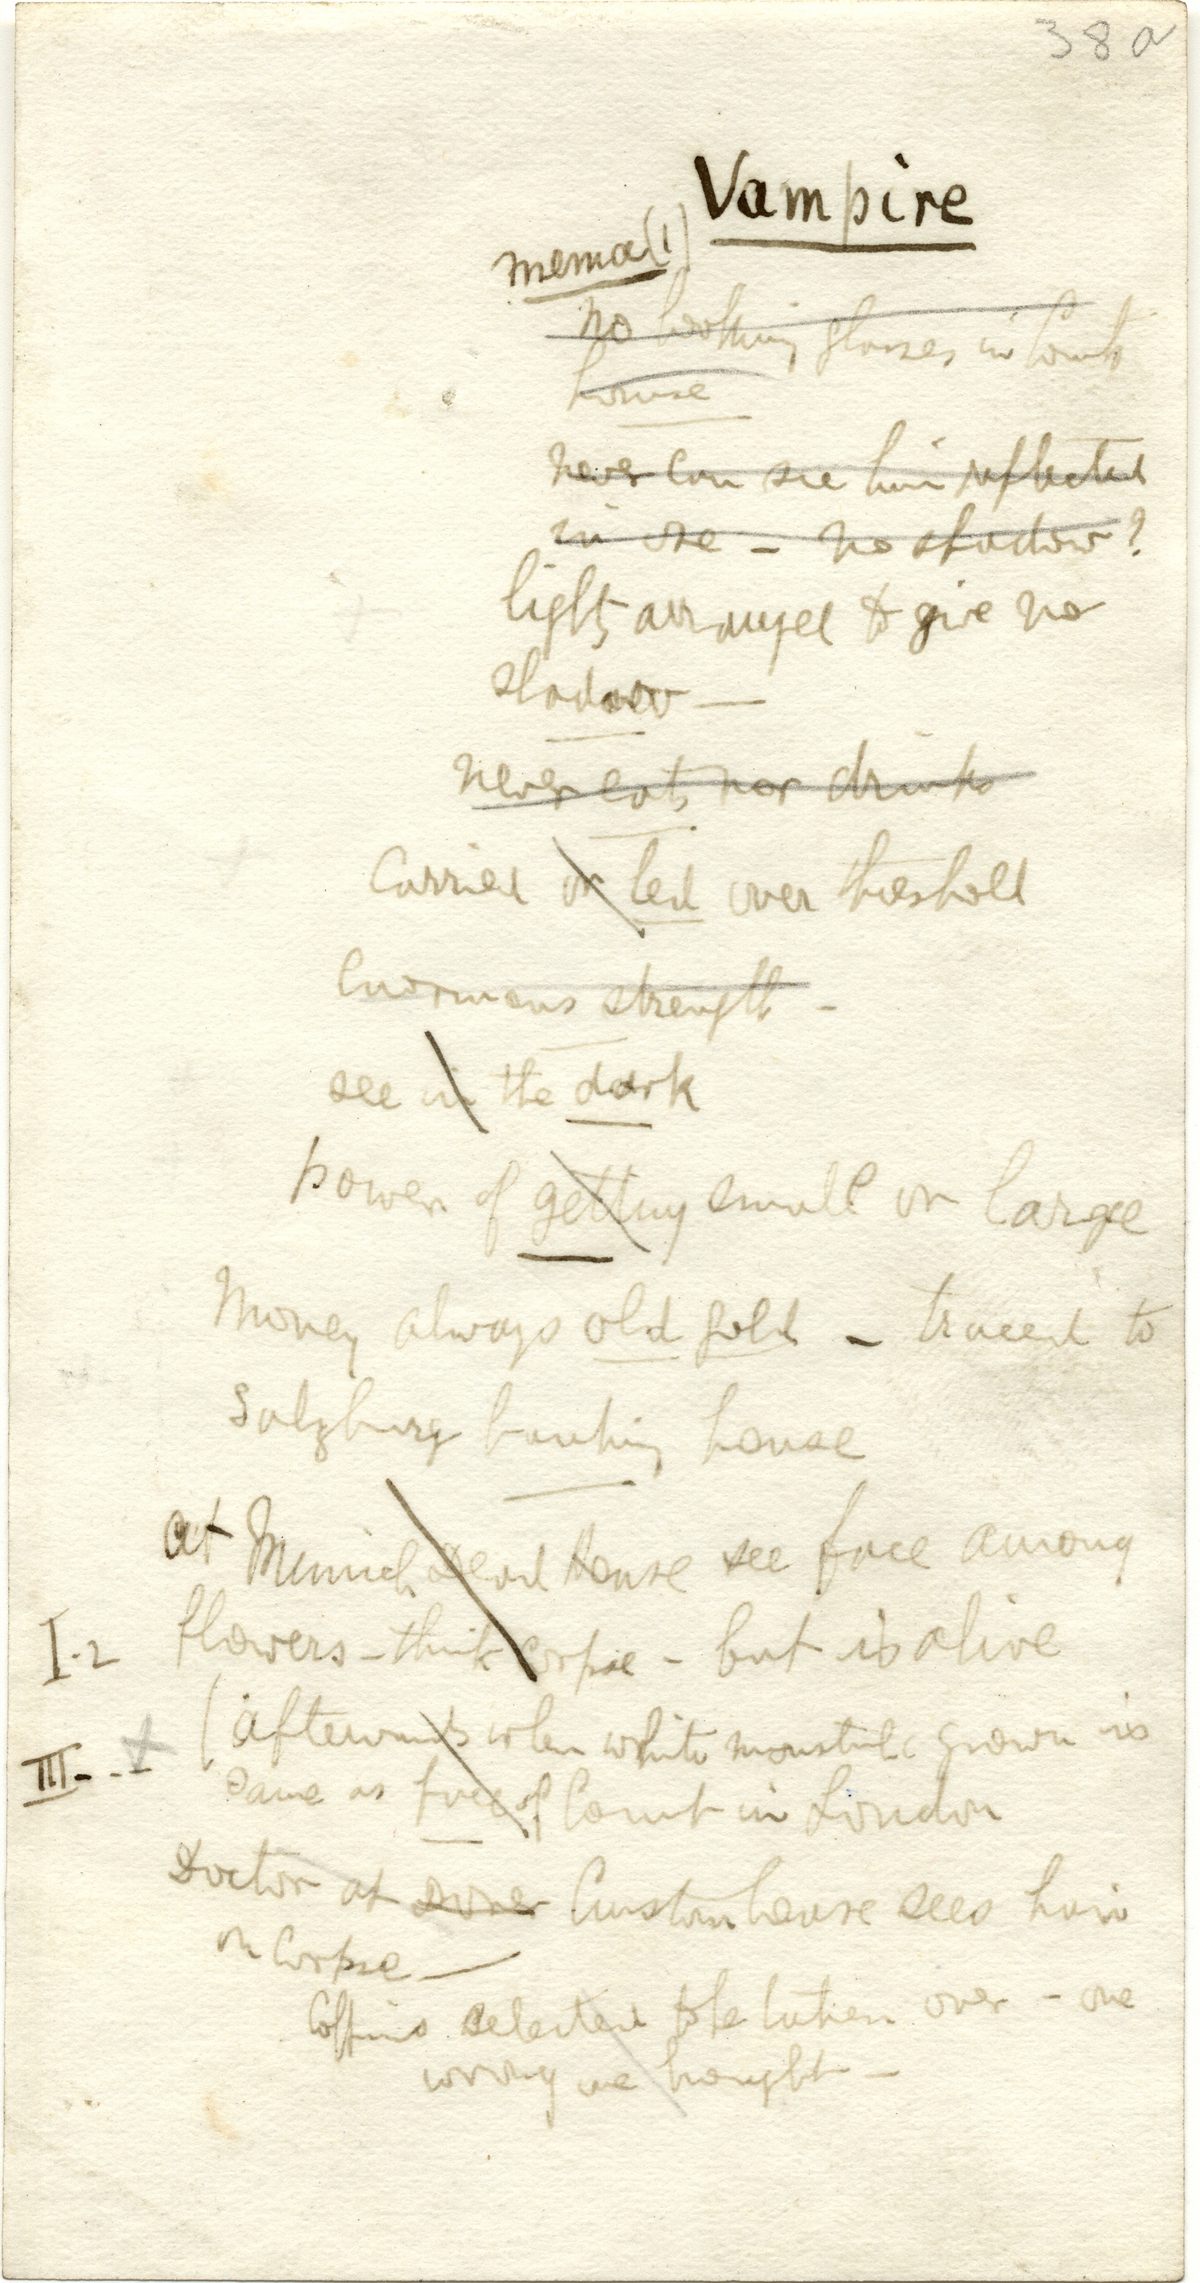 38a
Vampire
memo (1)
no looking glasses in Counts
house
never can see him reflected
in one – no shadow?
lights arranged to give no
shadow —
never eats nor drinks
Carried or led over threshold
enormous strength –
see in the dark
power of getting small or large
Money always old gold – traced to
Salzburg banking house
I.2
at Munich Dead House see face among
flowers – think corpse – but is alive
III
(afterwards when white moustache grown is
same as face of Count in London
Doctor at Dover Custom house sees him
or corpse —
Coffins selected to be taken over – one
wrong one brought –